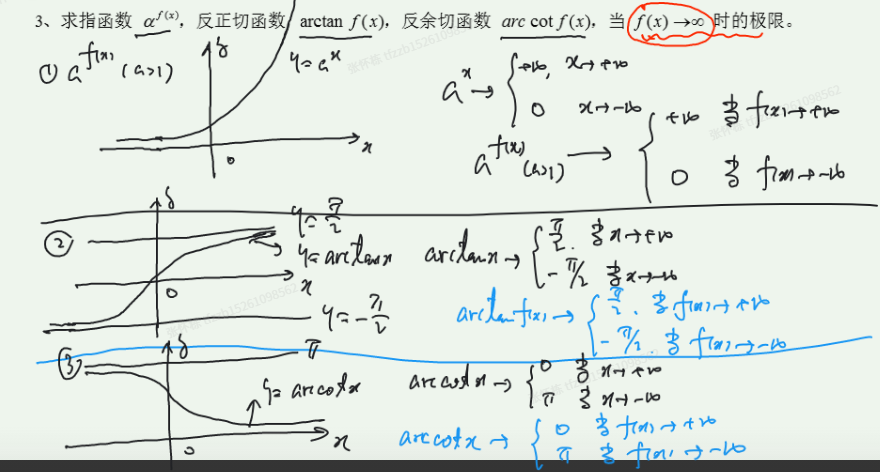 3、求指函数 α^{f(x)}, 反正切函数 arctan f(x), 反余切函数 arc cot f(x), 当 f(x)→∞ 时的极限。
① a^{f(x)} (a>1)
y
y=a^x
x
0
a^x → { +∞, x→+∞
0 x→-∞
a^{f(x)} (a>1) → { +∞ 当 f(x)→+∞
0 当 f(x)→-∞
②
y
y=π/2
y=arctanx
x
0
y=-π/2
arctanx → { π/2. 当x→+∞
-π/2 当x→-∞
arctanf(x) → { π/2. 当f(x)→+∞
-π/2. 当f(x)→-∞
③
y
π
y=arccotx
x
0
arccotx → { 0 当 x→+∞
π 当 x→-∞
arccotx → { 0 当 f(x)→+∞
π 当 f(x)→-∞
张怀栋 tfzzb15261098562